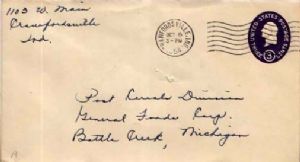 1103 W. Main
Crawfordsville
Ind.
CRAWFORDSVILLE, IND.
OCT
PM
UNITED STATES POSTAGE
3
Post Cereals Division
General Foods Corp.
Battle Creek, Michigan